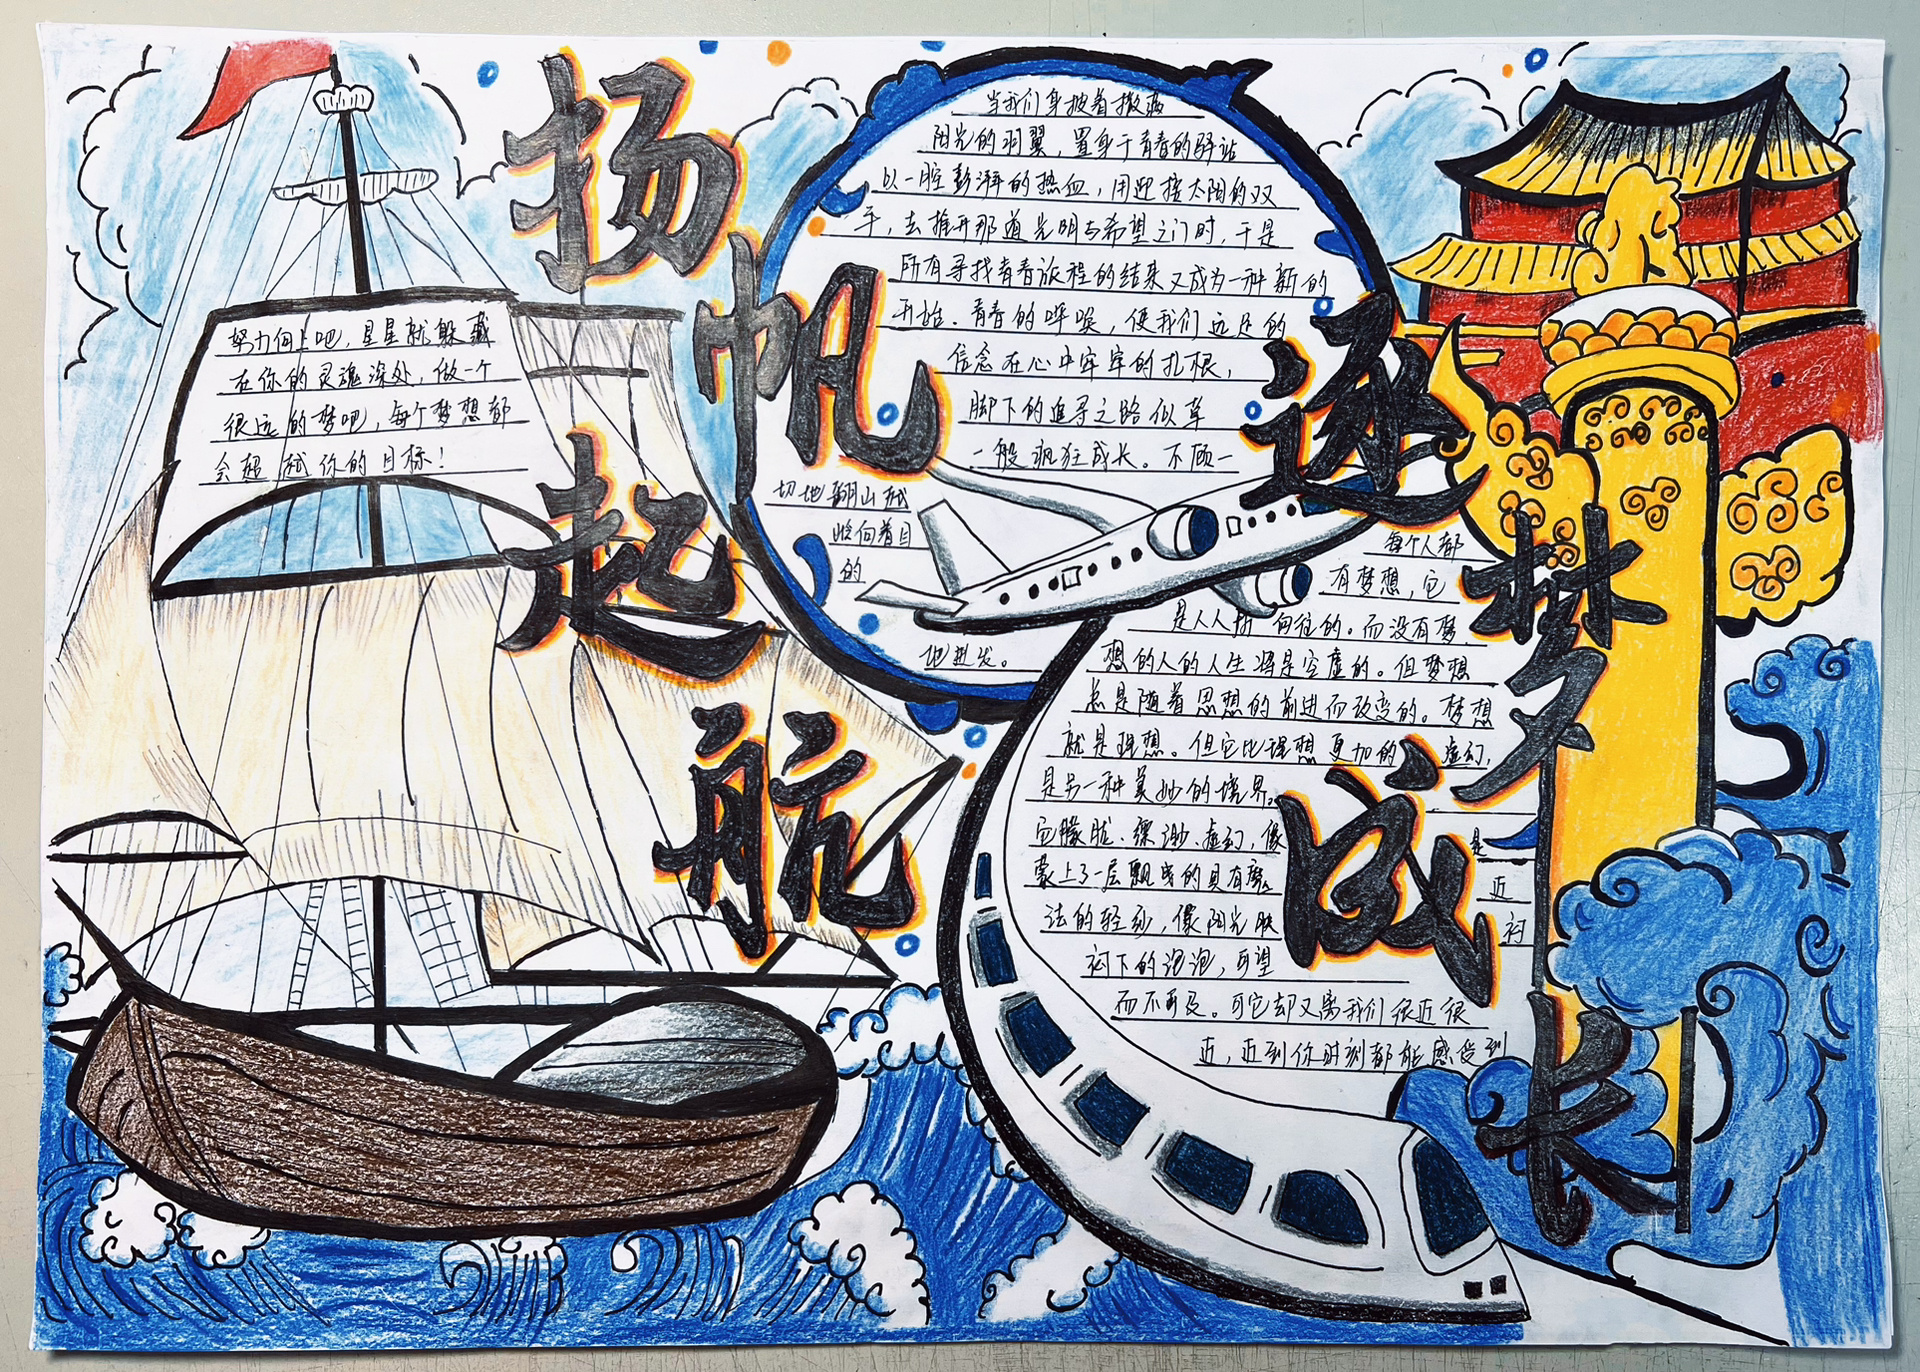 扬帆起航
逐梦成长
努力向上吧，星星就躲藏
在你的灵魂深处，做一个
很远的梦吧，每个梦想都
会超越你的目标！
当我们身披着撒满
阳光的羽翼，置身于青春的驿站
以一腔彭湃的热血，用迎接太阳的双
手，去推开那道光明与希望之门时，于是
所有寻找青春旅程的结束又成为一种新的
开始、青春的呼唤，使我们远足的
信念在心中牢牢的扎根，
脚下的追寻之路似草
一般疯狂成长。不顾一
切地翻山越
向着目
的
地进发。
每个人都
有梦想，它
是人人所向往的。而没有梦
想的人的人生将是空虚的。但梦想
总是随着思想的前进而改变的。梦想
就是理想。但它比理想更加的虚幻，
是另一种美妙的境界。
它朦胧、缥渺、虚幻，像是
蒙上了一层飘曳的具有魔近
法的轻纱，像阳光映衬
衬下的泡泡，可望
而不可及。可它却又离我们很近很
近，近到你时刻都能感受到